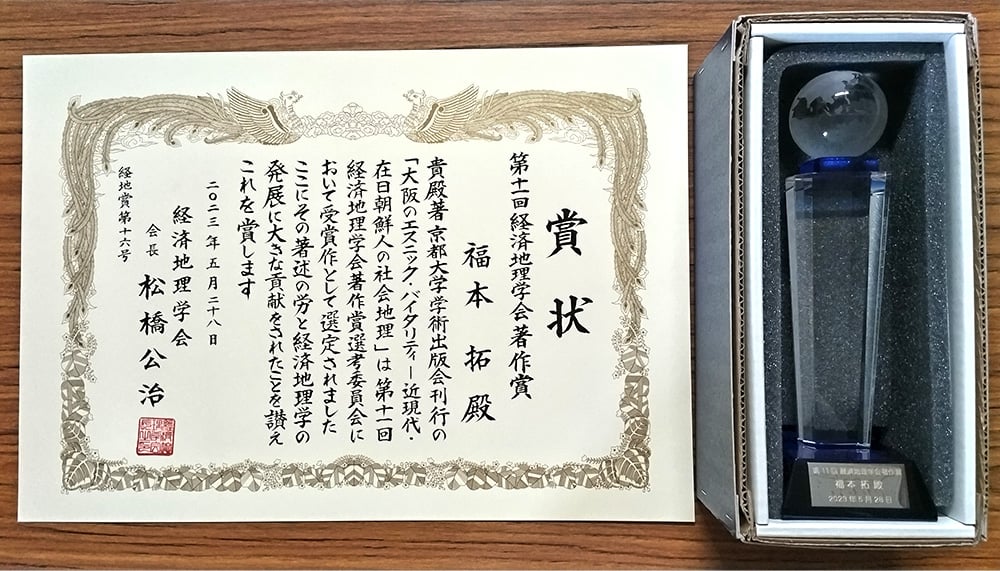 賞状
第十一回経済地理学会著作賞
福本 拓 殿
貴殿著 京都大学学術出版会刊行の
「大阪のエスニック・バイタリティー近現代・
在日朝鮮人の社会地理」は 第十一回
経済地理学会著作賞選考委員会に
おいて受賞作として選定されました
ここにその著述の労と経済地理学の
発展に大きな貢献をされたことを讃え
これを賞します
二〇二三年五月二十八日
経済地理学会
会長 松橋公治
経地賞第十六号
第11回 経済地理学会著作賞
福本 拓 殿
2023年5月28日